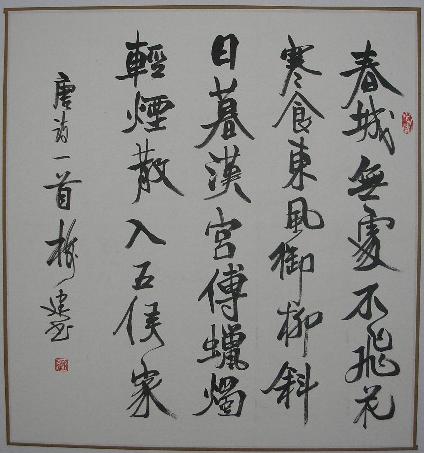 春城無處不飛花
寒食東風御柳斜
日暮漢宮傳蠟燭
輕煙散入五侯家
唐詩一首 建書